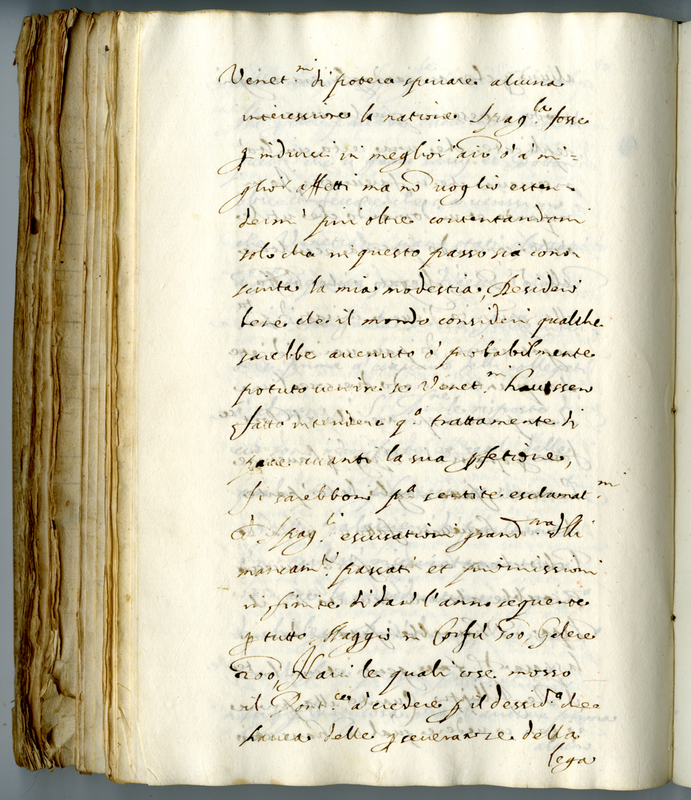 Venet.ni di potere sperare alcuna
interessione la natione Spag.la fosse
ꝑ indurli in meglior aiuto ò à mi=
glior affetti ma nõ uoglio esten
dermi piu oltre contentandomi
solo che in questo passo sia cono
sciuta la mia modestia, Desidero
bene che il mondo consideri qualche
sarebbe auenuto ò probabilmente
potuto uenire se Venet.ni hauessero
fatto intendere q.o trattamento di
pace auanti la sua ꝑfetione,
Si sarebbono p.a sentite esclamat.ni
Spag.li escusationi grand.ma delli
mancam.ti passati et promissioni
infinite di dar l'anno seguente
ꝑ tutto Maggio in Corfù 300 Galere
200, Naui le quali cose mosso
il Pont.ce à credere ꝑ il dessid.o che
hauea delle ꝑseueranze della
lega